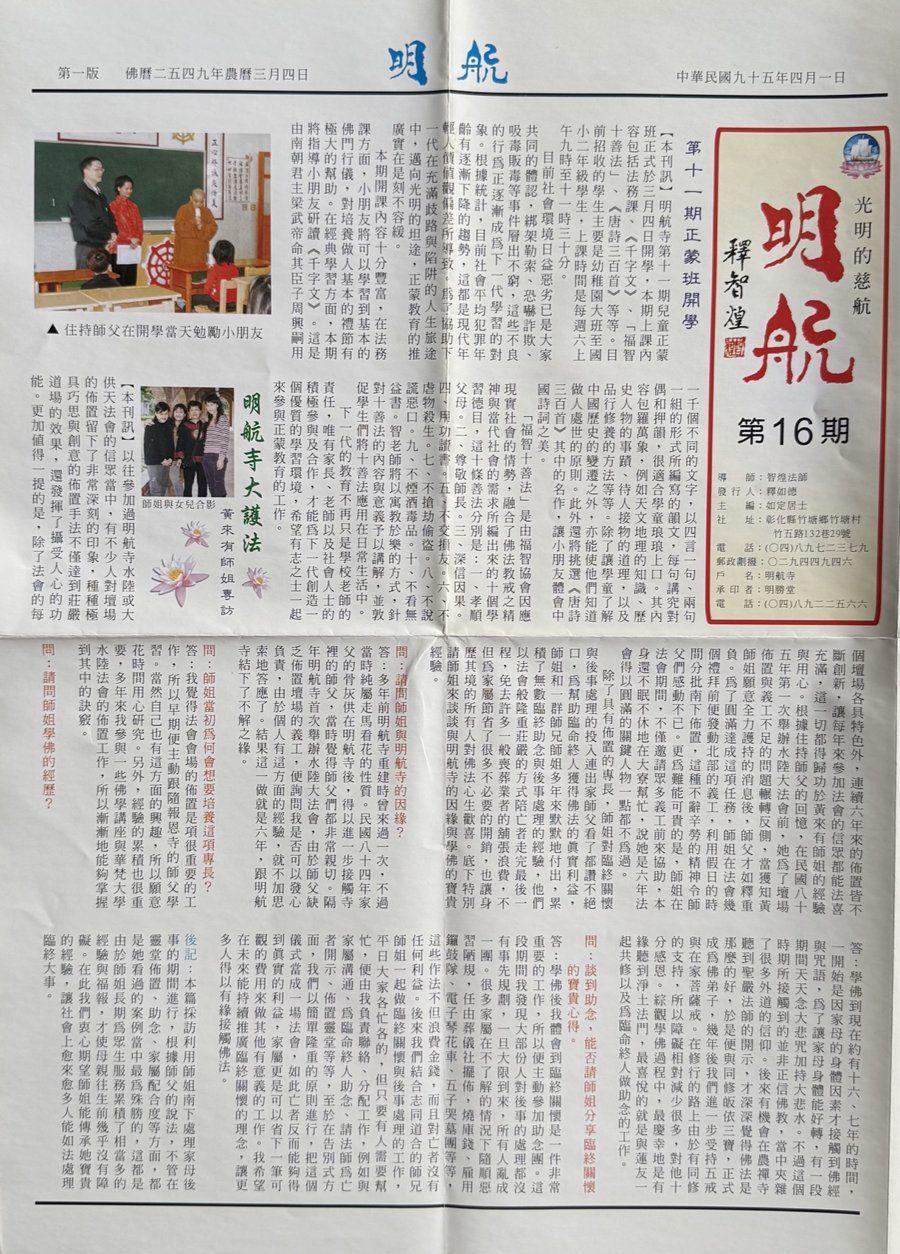 第一版
佛曆二五四九年農曆三月四日
明航
中華民國九十五年四月一日
光明的慈航
明航
釋智煌
第16期
導師：智煌法師
發行人：釋如德
主編：如定居士
社址：彰化縣竹塘鄉竹塘村
竹五路132巷29號
電話：(〇四)八九七二三七九
郵政劃撥：〇二九四四九四六
戶名：明航寺
承印者：明勝堂
電話：(〇四)八九二二五六六
第十一期正蒙班開學
【本刊訊】明航寺第十一期兒童正蒙
班正式於三月四日開學，本期上課內
容包括法務課、《千字文》、「福智
十善法」、《唐詩三百首》等等。目
前招收的學生主要是幼稚園大班至國
小二年級學生，上課時間是每週六上
午九時至十一時三十分。
目前社會環境日益惡劣已是大家
共同的體認，綁架勒索、恐嚇詐欺、
吸毒販毒等事件層出不窮，這些不良
的行為正逐漸成為下一代學習的對
象。根據統計，目前社會平均犯罪年
齡有逐漸下降的趨勢，這都是現代年
輕人價值觀偏差所導致。為了協助下
一代在充滿歧路與陷阱的人生旅途
中，邁向光明的坦途，正蒙教育的推
廣實在是刻不容緩。
本期開課內容十分豐富，在法務
課方面，小朋友將可以學習到基本的
佛門行儀，對培養做人基本的禮節有
極大的幫助。在經典學習方面，本期
將指導小朋友研讀《千字文》。這是
由南朝君主梁武帝命其臣子周興嗣用
▲ 住持師父在開學當天勉勵小朋友
一千個不同的文字，以四言一句、兩句
一組的形式所編寫的韻文，每句講究對
偶和押韻，很適合學童琅琅上口。其內
容包羅萬象，例如天文地理的知識、歷
史人物的事蹟、待人接物的道理，以及
品行修養的方法等等。除了讓學童了解
中國歷史的變遷之外，亦能使他們知道
做人處世的原則。此外，還將挑選《唐詩
三百首》其中的名作，讓小朋友體會中
國詩詞之美。
「福智十善法」是由福智協會因應
現實社會的情勢，融合了佛法教戒之精
神與當代社會的需求所編出來的十個學
習德目，這十條善法分別是：一、孝順
父母。二、尊敬師長。三、深信因果。
四、用功讀書。五、不交損友。六、不
虐物殺生。七、不搶劫偷盜。八、不說
謊惡口。九、不煙酒毒品。十、不看無
益書。智老師將以寓教於樂的方式，針
對十善法的內容與意義予以講解，並敦
促學生們將十善法應用在日常生活中。
下一代的教育不再只是學校老師的
責任，唯有家長、老師以及社會人士的
積極參與及合作，才能為下一代創造一
個優質的學習環境，希望有志之士一起
來參與正蒙教育的工作。
明航寺大護法
黃來有師姐專訪
師姐與女兒合影
【本刊訊】以往參加過明航寺水陸或大
供天法會的信眾當中，有不少人對壇場
的佈置留下了非常深刻的印象，種種極
具巧思與創意的佈置手法不僅達到莊嚴
道場的效果，還發揮了攝受人心的功
能。更加值得一提的是，除了法會的每
個壇場各具特色外，連續六年來的佈置皆不
斷創新，讓每年來參加法會的信眾都能法喜
充滿，這一切都得歸功於黃來有師姐的經驗
與用心。根據住持師父的回憶，在民國八十
五年第一次舉辦水陸大法會前，她為了壇場
佈置與義工不足的問題輾轉反側，當獲知黃
師姐願意全力護持的消息後，師父才如釋重
負。為了圓滿達成這項任務，師姐在法會幾
個禮拜前便發動北部的義工，利用假日的時
間分批南下佈置，這種不辭辛勞的精神令師
父們感動不已。更為難能可貴的是，師姐在
法會期間，不僅邀請眾多義工前來協助，本
身還不眠不休地在大寮幫忙，說她是六年法
會得以圓滿的關鍵人物一點都不為過。
除了具有佈置的專長，師姐對臨終關懷
與後事處理的投入連出家師父看了都讚不絕
口，為幫助臨命終人獲得佛法的真實利益，
師姐和一群師兄師姐多年來默默地付出，累
積了無數臨終助念與後事處理的經驗，他們
以法會般莊嚴的方式陪亡者走完最後一
程，免去許多一般喪葬業者的舖張浪費，不
但為家屬節省了很多不必要的開銷，也讓身
歷其境的所有人對佛法心生歡喜。底下特別
請師姐來談談與明航寺的因緣與學佛的寶貴
經驗。
問：請問師姐與明航寺的因緣？
答：多年前明航寺重建時曾來過一次，不過
當時純屬走馬看花的性質。民國八十四年家
父的骨灰供在明航寺後，得以進一步接觸寺
裡的師父，當時覺得師父們都非常親切。隔
年明航寺首次舉辦水陸大法會，由於師父缺
乏佈置壇場的義工，便詢問我是否可以發心
負責，由於個人有這方面的經驗，就不加思
索地答應了。結果這一做就是六年，跟明航
寺結下了不解之緣。
問：師姐當初為何會想要培養這項專長？
答：我覺得法會會場的佈置是項很重要的工
作，所以早期便主動跟隨報恩寺的師父學
習。當然自己也有這方面的興趣，所以願意
花時間用心研究。另外，經驗的累積也很重
要，多年來我參與一些佛學講座與華梵大學
水陸法會的佈置工作，所以漸漸地能夠掌握
到其中的訣竅。
問：請問師姐學佛的經歷？
答：學佛到現在約有十六、七年的時間，
一開始是因家母的身體因素才接觸到佛經
與咒語，為了讓家母身體能好轉，有一段
期間天天念大悲咒加持大悲水。不過這個
時期所接觸到的並非正信佛教，當中夾雜
了很多外道的信仰。後來有機會在農禪寺
聽到聖嚴法師的開示，才深深覺得佛法是
那麼的好，於是便與同修皈依三寶，正式
成為佛弟子，幾年後我們進一步受持五戒
與在家菩薩戒。在修行的路上由於有同修
的支持，所以障礙相對減少很多，對他十
分感恩。綜觀學佛過程中，最慶幸地是有
緣聽到淨土法門，最喜悅的就是與蓮友一
起共修以及為臨命終人做助念的工作。
問：談到助念，能否請師姐分享臨終關懷
的寶貴心得。
答：學佛後我體會到臨終關懷是一件非常
重要的工作，所以便主動參加助念團。這
段期間我發現大部份人對後事的處理都沒
有事先規劃，一旦大限到來，所有人亂成
一團。很多家屬在不了解的情況下隨順惡
習陋規，任由葬儀社擺佈，燒庫錢、雇用
鑼鼓隊、電子琴花車、五子哭墓團等等，
這些作法不但浪費金錢，而且對亡者沒有
任何利益。後來我們結合志同道合的師兄
師姐一起做臨終關懷與後事處理的工作，
平日大家各忙各的，但只要有人需要幫
忙，便由我負責聯絡，分配工作，例如與
家屬溝通、為臨命終人助念、請法師為亡
者開示、佈置靈堂等等，至於在告別式方
面，我們以簡單隆重的原則進行，把這個
儀式當成一場法會，如此亡者反而能夠得
到真實的利益，家屬更是可以省下一筆可
觀的費用來做其他有意義的工作。我希望
在未來能持續推廣臨終關懷的理念，讓更
多人得以有緣接觸佛法。
後記：本篇採訪利用師姐南下處理家母後
事的期間進行，根據師父的說法，不管在
靈堂佈置、助念、家屬配合度等方面，都
是她看過的案例當中最為殊勝的，這都是
由於師姐長期為眾生服務累積了相當多的
經驗與福報，才使母親往生前幾乎沒有障
礙。在此我們衷心期望師姐能傳承她寶貴
的經驗，讓社會上愈來愈多人能如法處理
臨終大事。